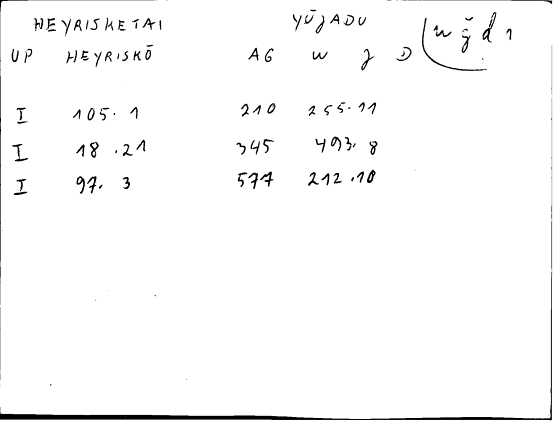 HEYRISKETAI YŪǰADU
UP HEYRISKŌ AG W J D w ǧ d 1
I 105. 1 210 255.11
I 18 .21 345 493. 8
I 97. 3 577 212 .10